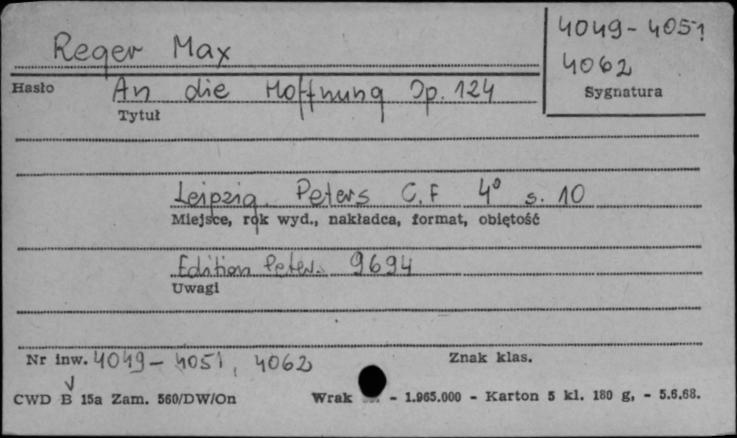 4049-4051
Reger Max
4062
Hasło
An die Hoffnung Op. 124
Sygnatura
Tytuł
Leipzig Peters C.F 4° s. 10
Miejsce, rok wyd., nakładca, format, objętość
Edition Peters. 9694
Uwagi
Nr inw. 4049-4051, 4062
Znak klas.
CWD B 15a Zam. 560/DW/On
Wrak - 1.965.000 - Karton 5 kl. 180 g, - 5.6.68.